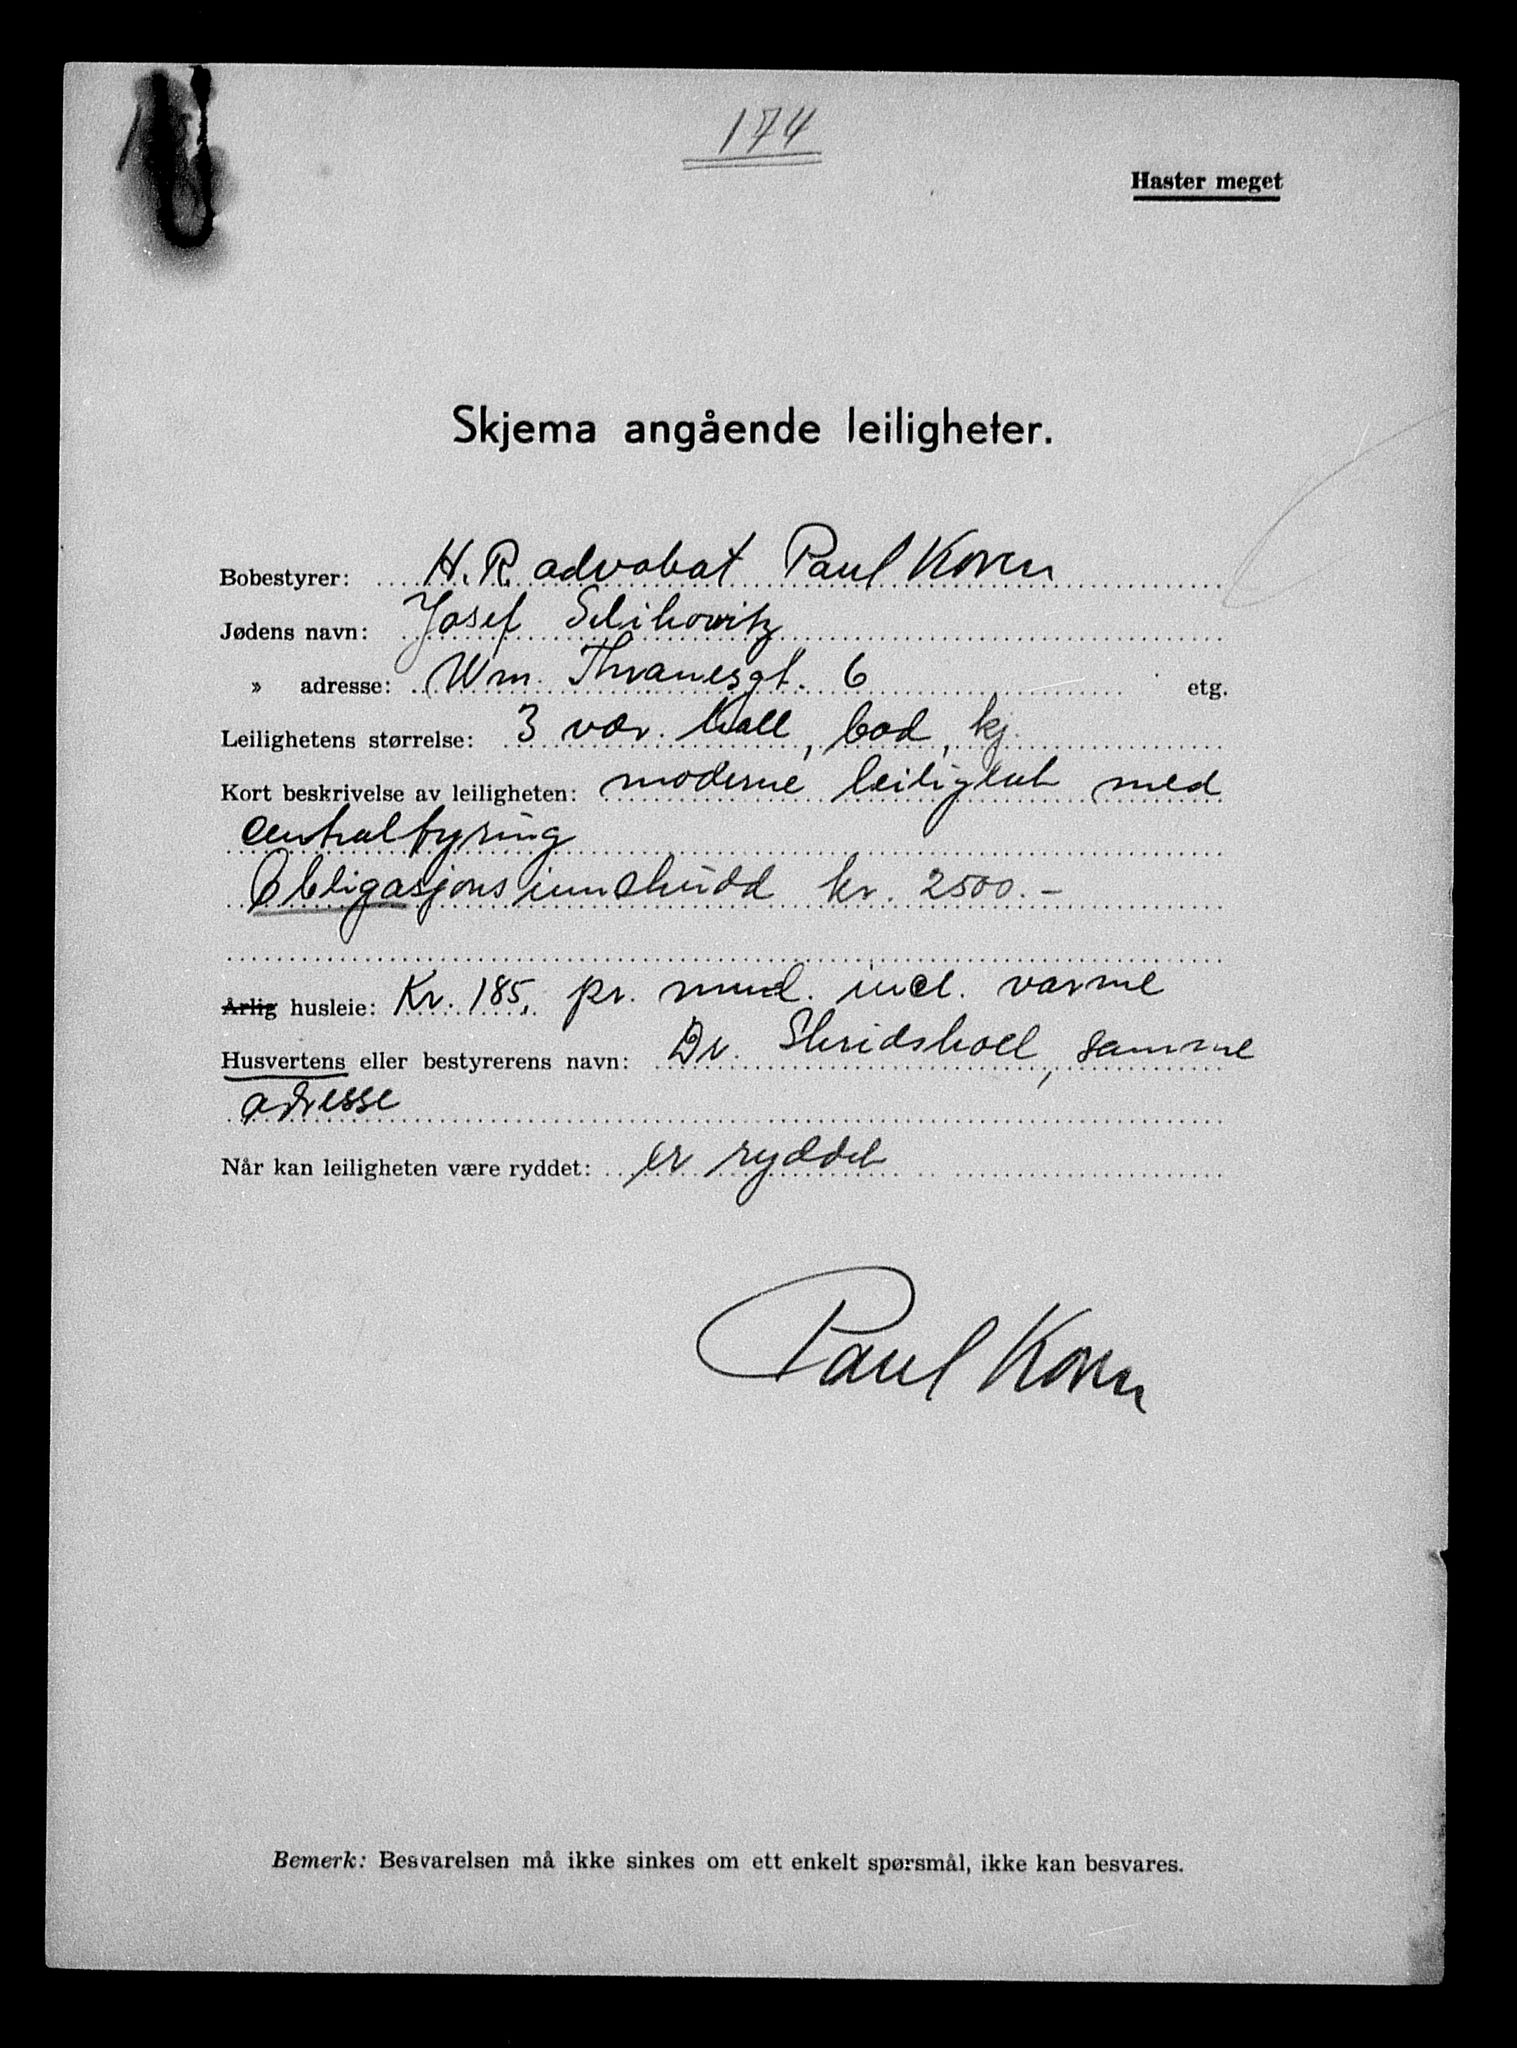 174
Haster meget
Skjema angående leiligheter.
Bobestyrer: H.R. advokat Paul Koren
Jødens navn: Josef Selikowitz
» adresse: Wm. Thranesgt. 6 etg.
Leilighetens størrelse: 3 vær. hall, bad, kj.
Kort beskrivelse av leiligheten: moderne leilighet med
centralfyring
Obligasjonsinnskudd kr. 2500.-
Årlig husleie: Kr. 185, pr. mnd. incl. varme
Husvertens eller bestyrerens navn: Dr. Skridshoel, samme
adresse
Når kan leiligheten være ryddet: er ryddet
Paul Koren
Bemerk: Besvarelsen må ikke sinkes om ett enkelt spørsmål, ikke kan besvares.